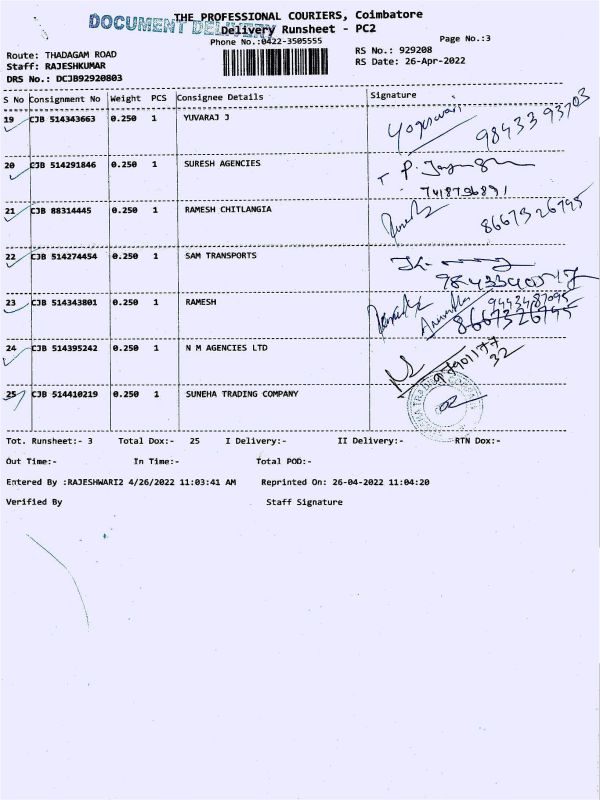 THE PROFESSIONAL COURIERS, Coimbatore
DOCUMENT DELIVERY
Delivery Runsheet - PC2
Phone No.:0422-3505555
Page No.:3
Route: THADAGAM ROAD
RS No.: 929208
Staff: RAJESHKUMAR
RS Date: 26-Apr-2022
DRS No.: DCJB92920803
S No Consignment No Weight PCS Consignee Details Signature
19 CJB 514343663 0.250 1 YUVARAJ J Yogeswari 9843393703
20 CJB 514291846 0.250 1 SURESH AGENCIES
7418796891
21 CJB 88314445 0.250 1 RAMESH CHITLANGIA 8667326745
22 CJB 514274454 0.250 1 SAM TRANSPORTS
23 CJB 514343801 0.250 1 RAMESH 9443487095
8667326745
24 CJB 514395242 0.250 1 N M AGENCIES LTD
25 CJB 514410219 0.250 1 SUNEHA TRADING COMPANY
Tot. Runsheet:- 3 Total Dox:- 25 I Delivery:- II Delivery:- RTN Dox:-
Out Time:- In Time:- Total POD:-
Entered By :RAJESHWARI2 4/26/2022 11:03:41 AM Reprinted On: 26-04-2022 11:04:20
Verified By Staff Signature